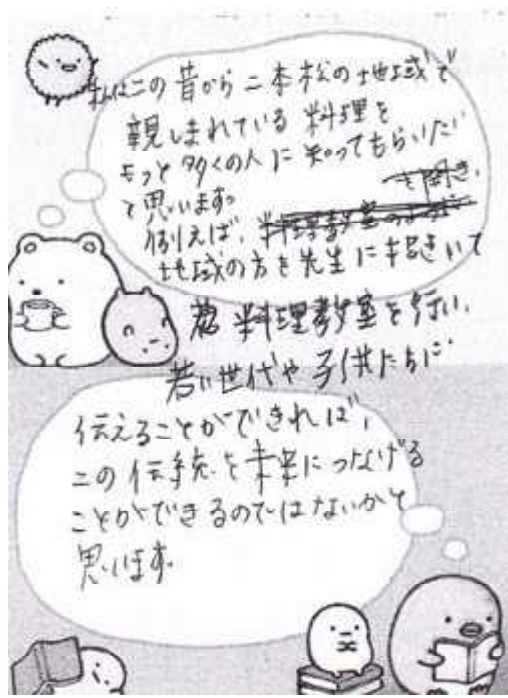 私はこの昔から二本松の地域で
親しまれている料理を
もっと多くの人に知ってもらいたい
と思います。
例えば、料理教室の を開き、
地域の方を先生に招きいて
料理教室を行い、
若い世代や子供たちに
伝えることができれば、
この伝統を未来につなげる
ことができるのではないかと
思います。